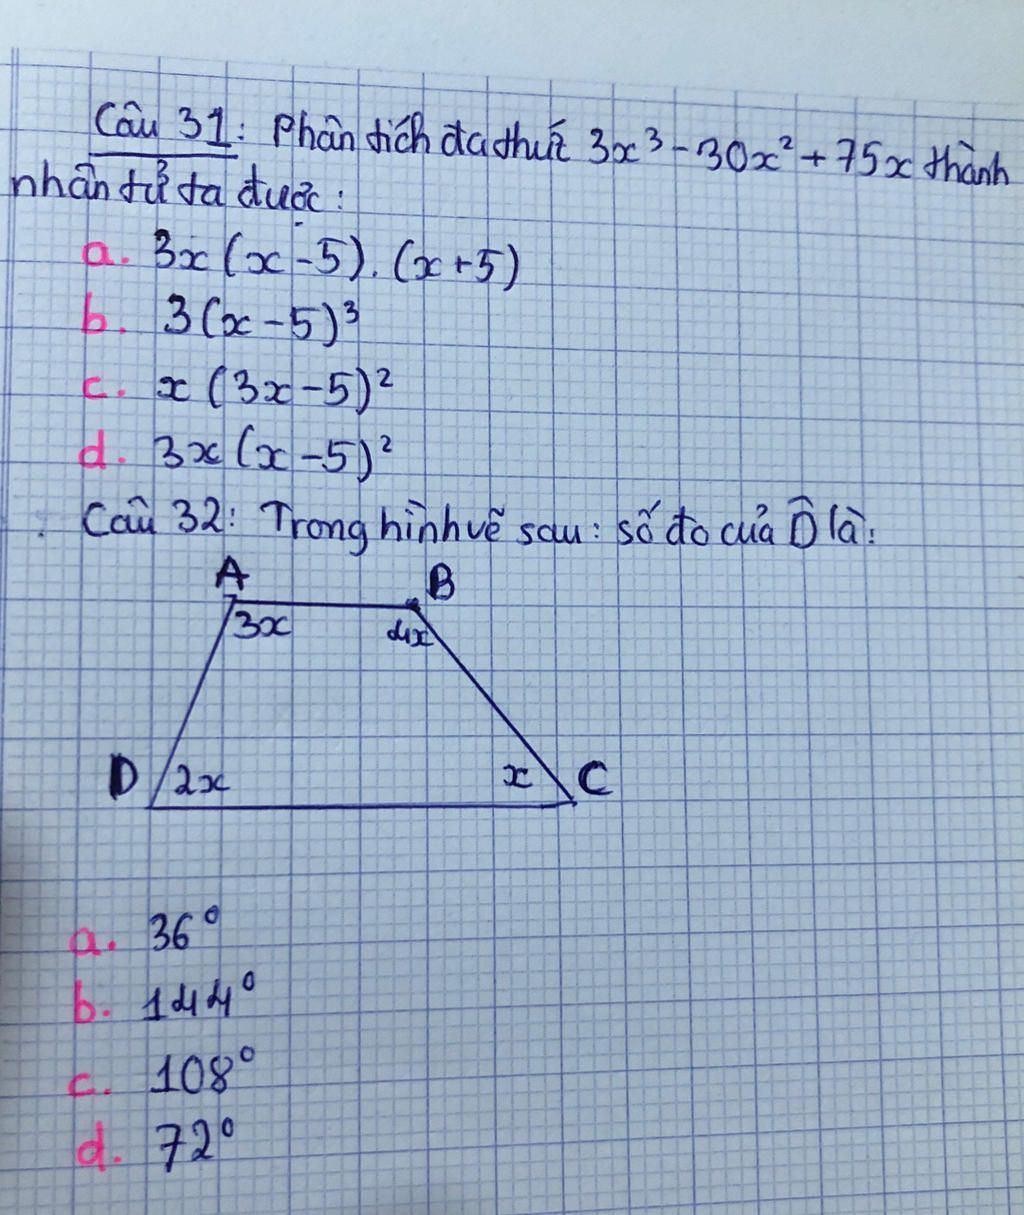 Câu 31: Phân tích đa thức 3x³ - 30x² + 75x thành
nhân tử ta được:
a. 3x(x - 5).(x + 5)
b. 3(x - 5)³
c. x(3x - 5)²
d. 3x(x - 5)²
Câu 32: Trong hình vẽ sau: số đo của D̂ là:
A B
3x 4x
D 2x x C
a. 36°
b. 144°
c. 108°
d. 72°